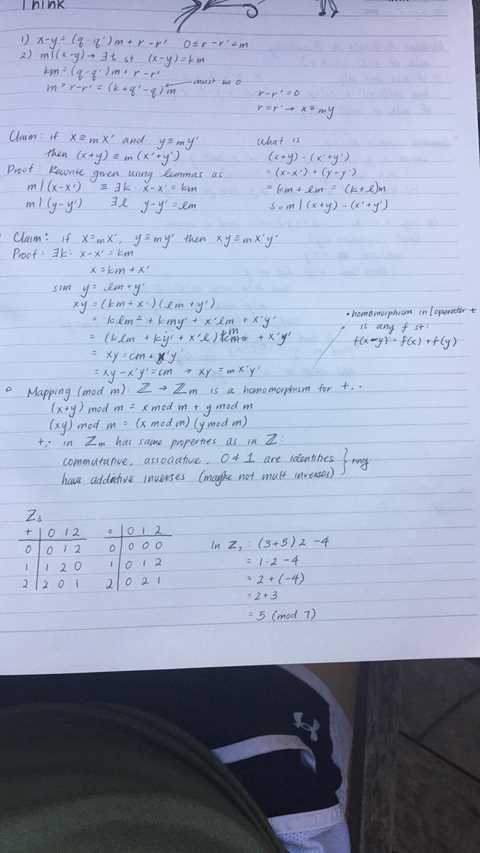 Think
1) x-y = (q-q')m + r-r' 0≤r-r'<m
2) m|(x-y) → ∃t st (x-y)=km
km = (q-q')m + r-r'
must be 0
m > r-r' = (k+q'-q)m
r-r'=0
r=r' → x≡my
Claim: if x≡mx' and y≡my'
then (x+y) ≡m (x'+y')
Proof Rewrite given using lemmas as
m|(x-x') ≡ ∃k x-x'=km
m|(y-y') ∃l y-y'=lm
What is
(x+y)-(x'+y')
=(x-x')+(y-y')
=km+lm = (k+l)m
so m|(x+y)-(x'+y')
Claim: if x≡mx', y≡my' then xy≡mx'y'
Proof: ∃k x-x'=km
x=km+x'
sim y=lm+y'
xy=(km+x')(lm+y')
= klm²+kmy'+x'lm+x'y'
= (klm+ky'+x'l)m+x'y'
= xy=cm+x'y'
= xy-x'y'=cm → xy≡mx'y'
• homomorphism in operator +
is any f st:
f(x+y)=f(x)+f(y)
Mapping (mod m): ℤ → ℤm is a homomorphism for +, ·
(x+y) mod m = x mod m + y mod m
(xy) mod m = (x mod m)(y mod m)
+, · in ℤm has same properties as in ℤ:
commutative, associative, 0 & 1 are identities } ring
have additive inverses (maybe not mult inverses)
ℤ3
+ 0 1 2
0 0 1 2
1 1 2 0
2 2 0 1
0 1 2
0 0 0 0
1 0 1 2
2 0 2 1
In ℤ7: (3+5)2-4
= 1·2-4
= 2+(-4)
= 2+3
= 5 (mod 7)